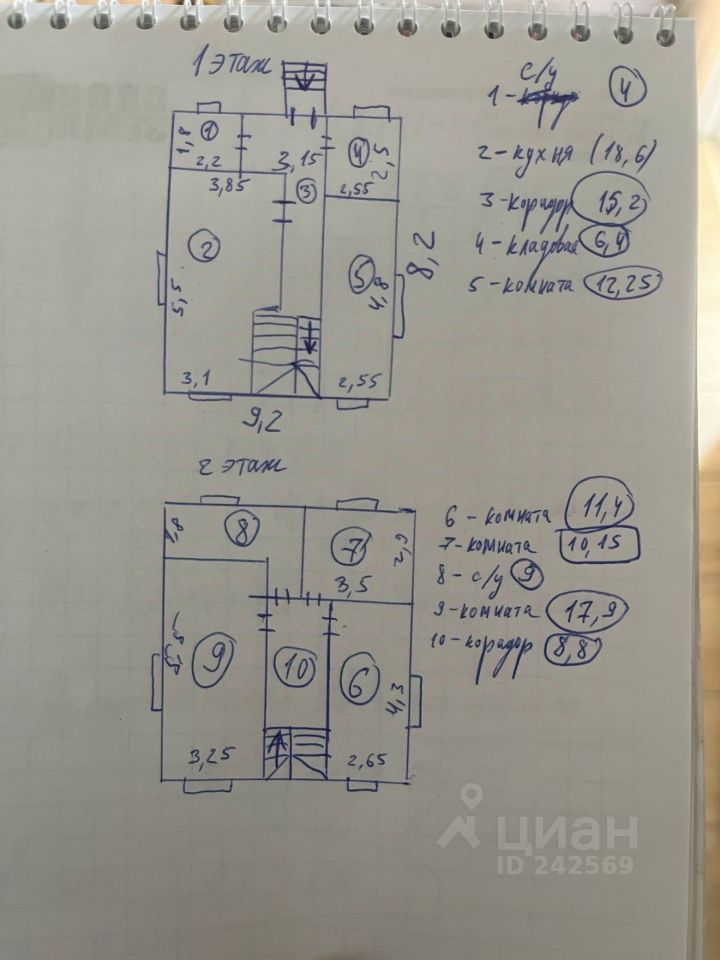 1 этаж
с/у
1- 4
2-кухня (18,6)
3-коридор 15,2
4-кладовая 6,4
5-комната 12,25
1
1,8
2,2
3,85
3,15
3
4
2,5
2,55
2
5,5
3,1
5
4,8
2,55
8,2
9,2
2 этаж
6 - комната 11,4
7-комната 10,15
8 - с/у 9
9-комната 17,9
10-коридор 8,8
1,8
8
7
2,9
3,5
9
10
6
4,3
3,25
2,65
циан
ID 242569